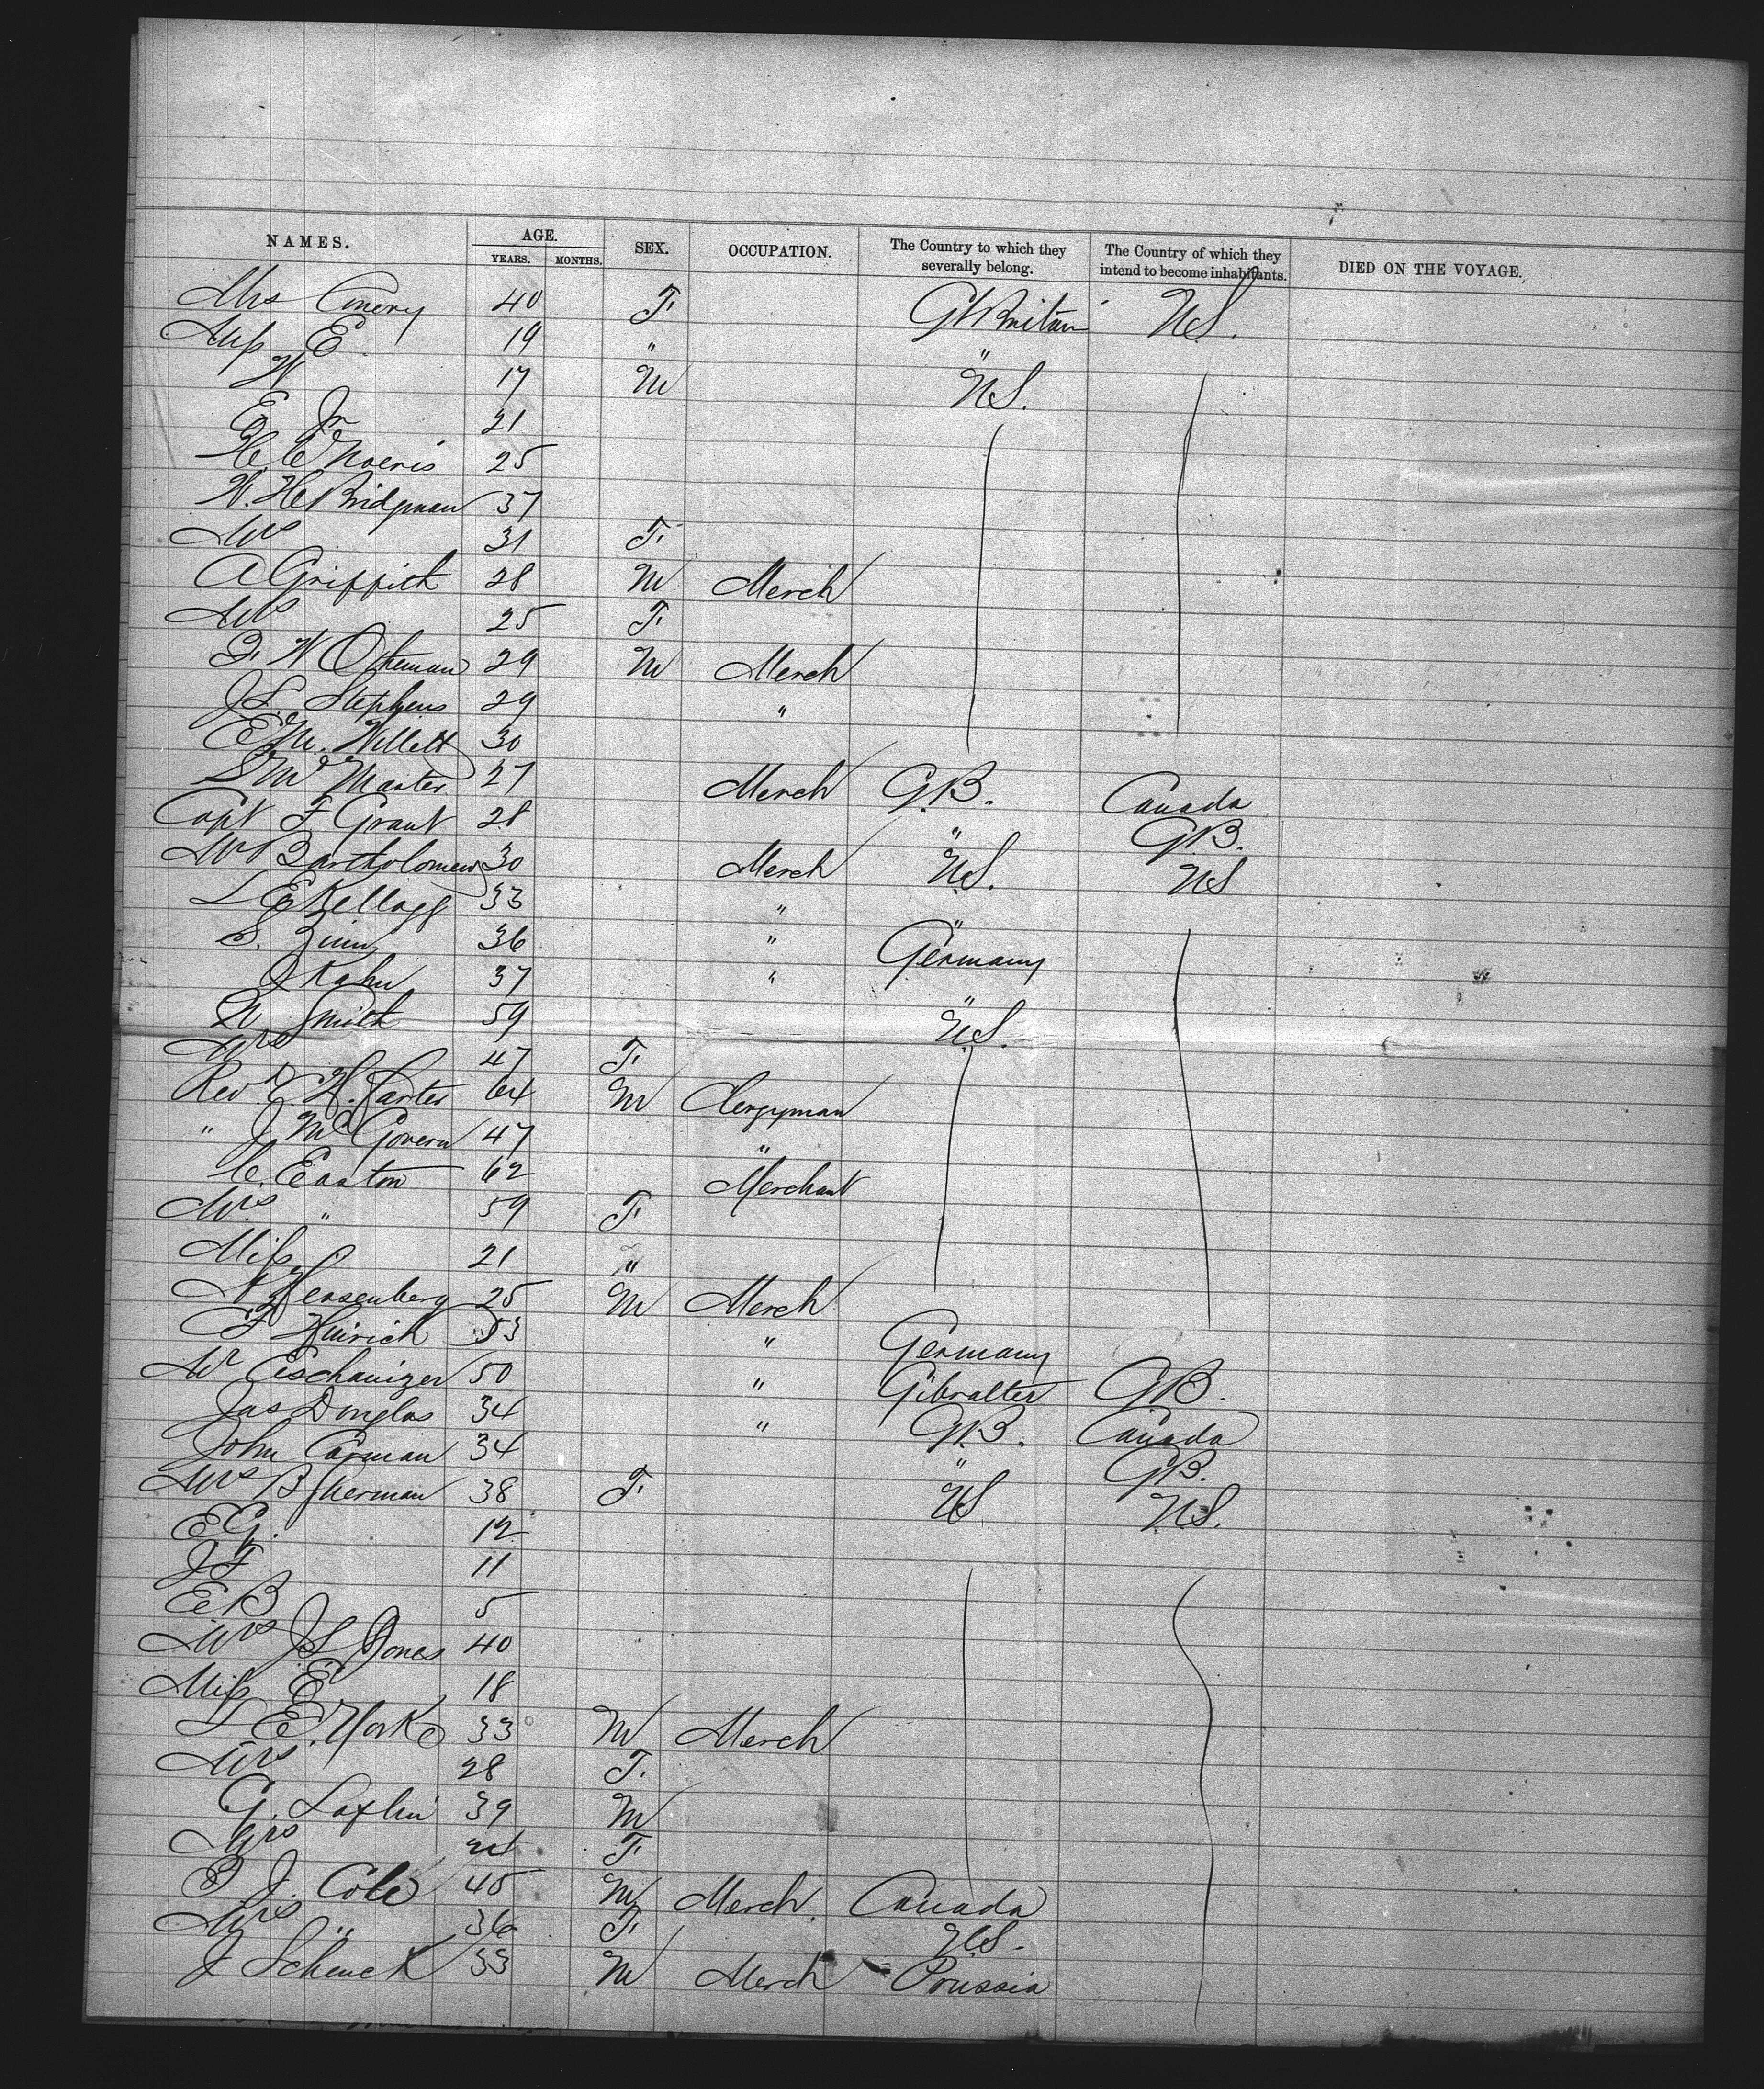 NAMES. AGE. SEX. OCCUPATION. The Country to which they severally belong. The Country of which they intend to become inhabitants. DIED ON THE VOYAGE.
YEARS. MONTHS.
Mrs Emery 40 F. Gt Britain U.S.
Miss E. 19 " "
W 17 M U.S.
E Jr 21
H C Norris 25
W. H. Bridgman 37
Mrs 31 F.
A Griffith 28 M Merch
Mrs 25 F.
F. W Oteman 29 M Merch
J L Stephens 29 "
E M. Willett 30
S Mc Master 27 Merch G.B. Canada
Capt F Grant 28 " G.B.
Mr Bartholomew 30 Merch U.S. US
L E Kellogg 33 " "
S. Zinn 36 " Germany
J Kahn 37 " "
W Smith 59 U.S.
Mrs 47 F.
Revd H. Carter 64 M Clergyman
" J McGovern 47 "
C. Easton 62 Merchant
Mrs " 59 F.
Miss 21 "
N Hersenberg 25 M Merch
F Heinrich 53 " Germany
Mr Eschauizer 50 " Gibralter G.B.
Jas Douglas 34 " G.B. Canada
John Carman 34 " G.B.
Mrs B Sherman 38 F. US U.S.
E G. 12
J F 11
E B 5
Mrs J L Jones 40
Miss E 18
L E. York 33 M Merch
Mrs 28 F.
G. Laflin 39 M
Mrs F.
P J. Cole 45 M Merch. Canada
Mrs " 36 F. U.S.
J Schenck 33 M Merch Prussia